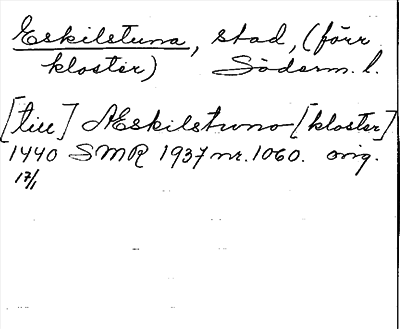 Eskilstuna, stad, (förr
kloster) Söderm. l.
[till] Æskilstwno [kloster]
1440 SMR 1937 nr. 1060. orig.
17/1